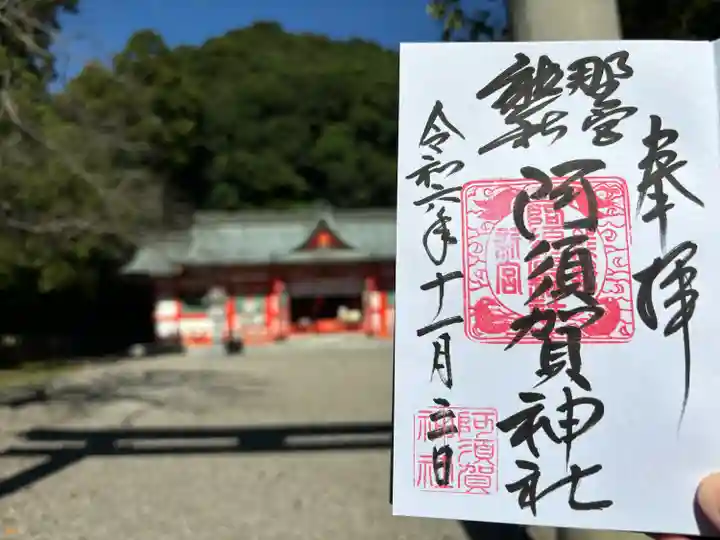 奉拝
阿須賀神社
令和六年十一月三日
新宮
阿須賀
神社